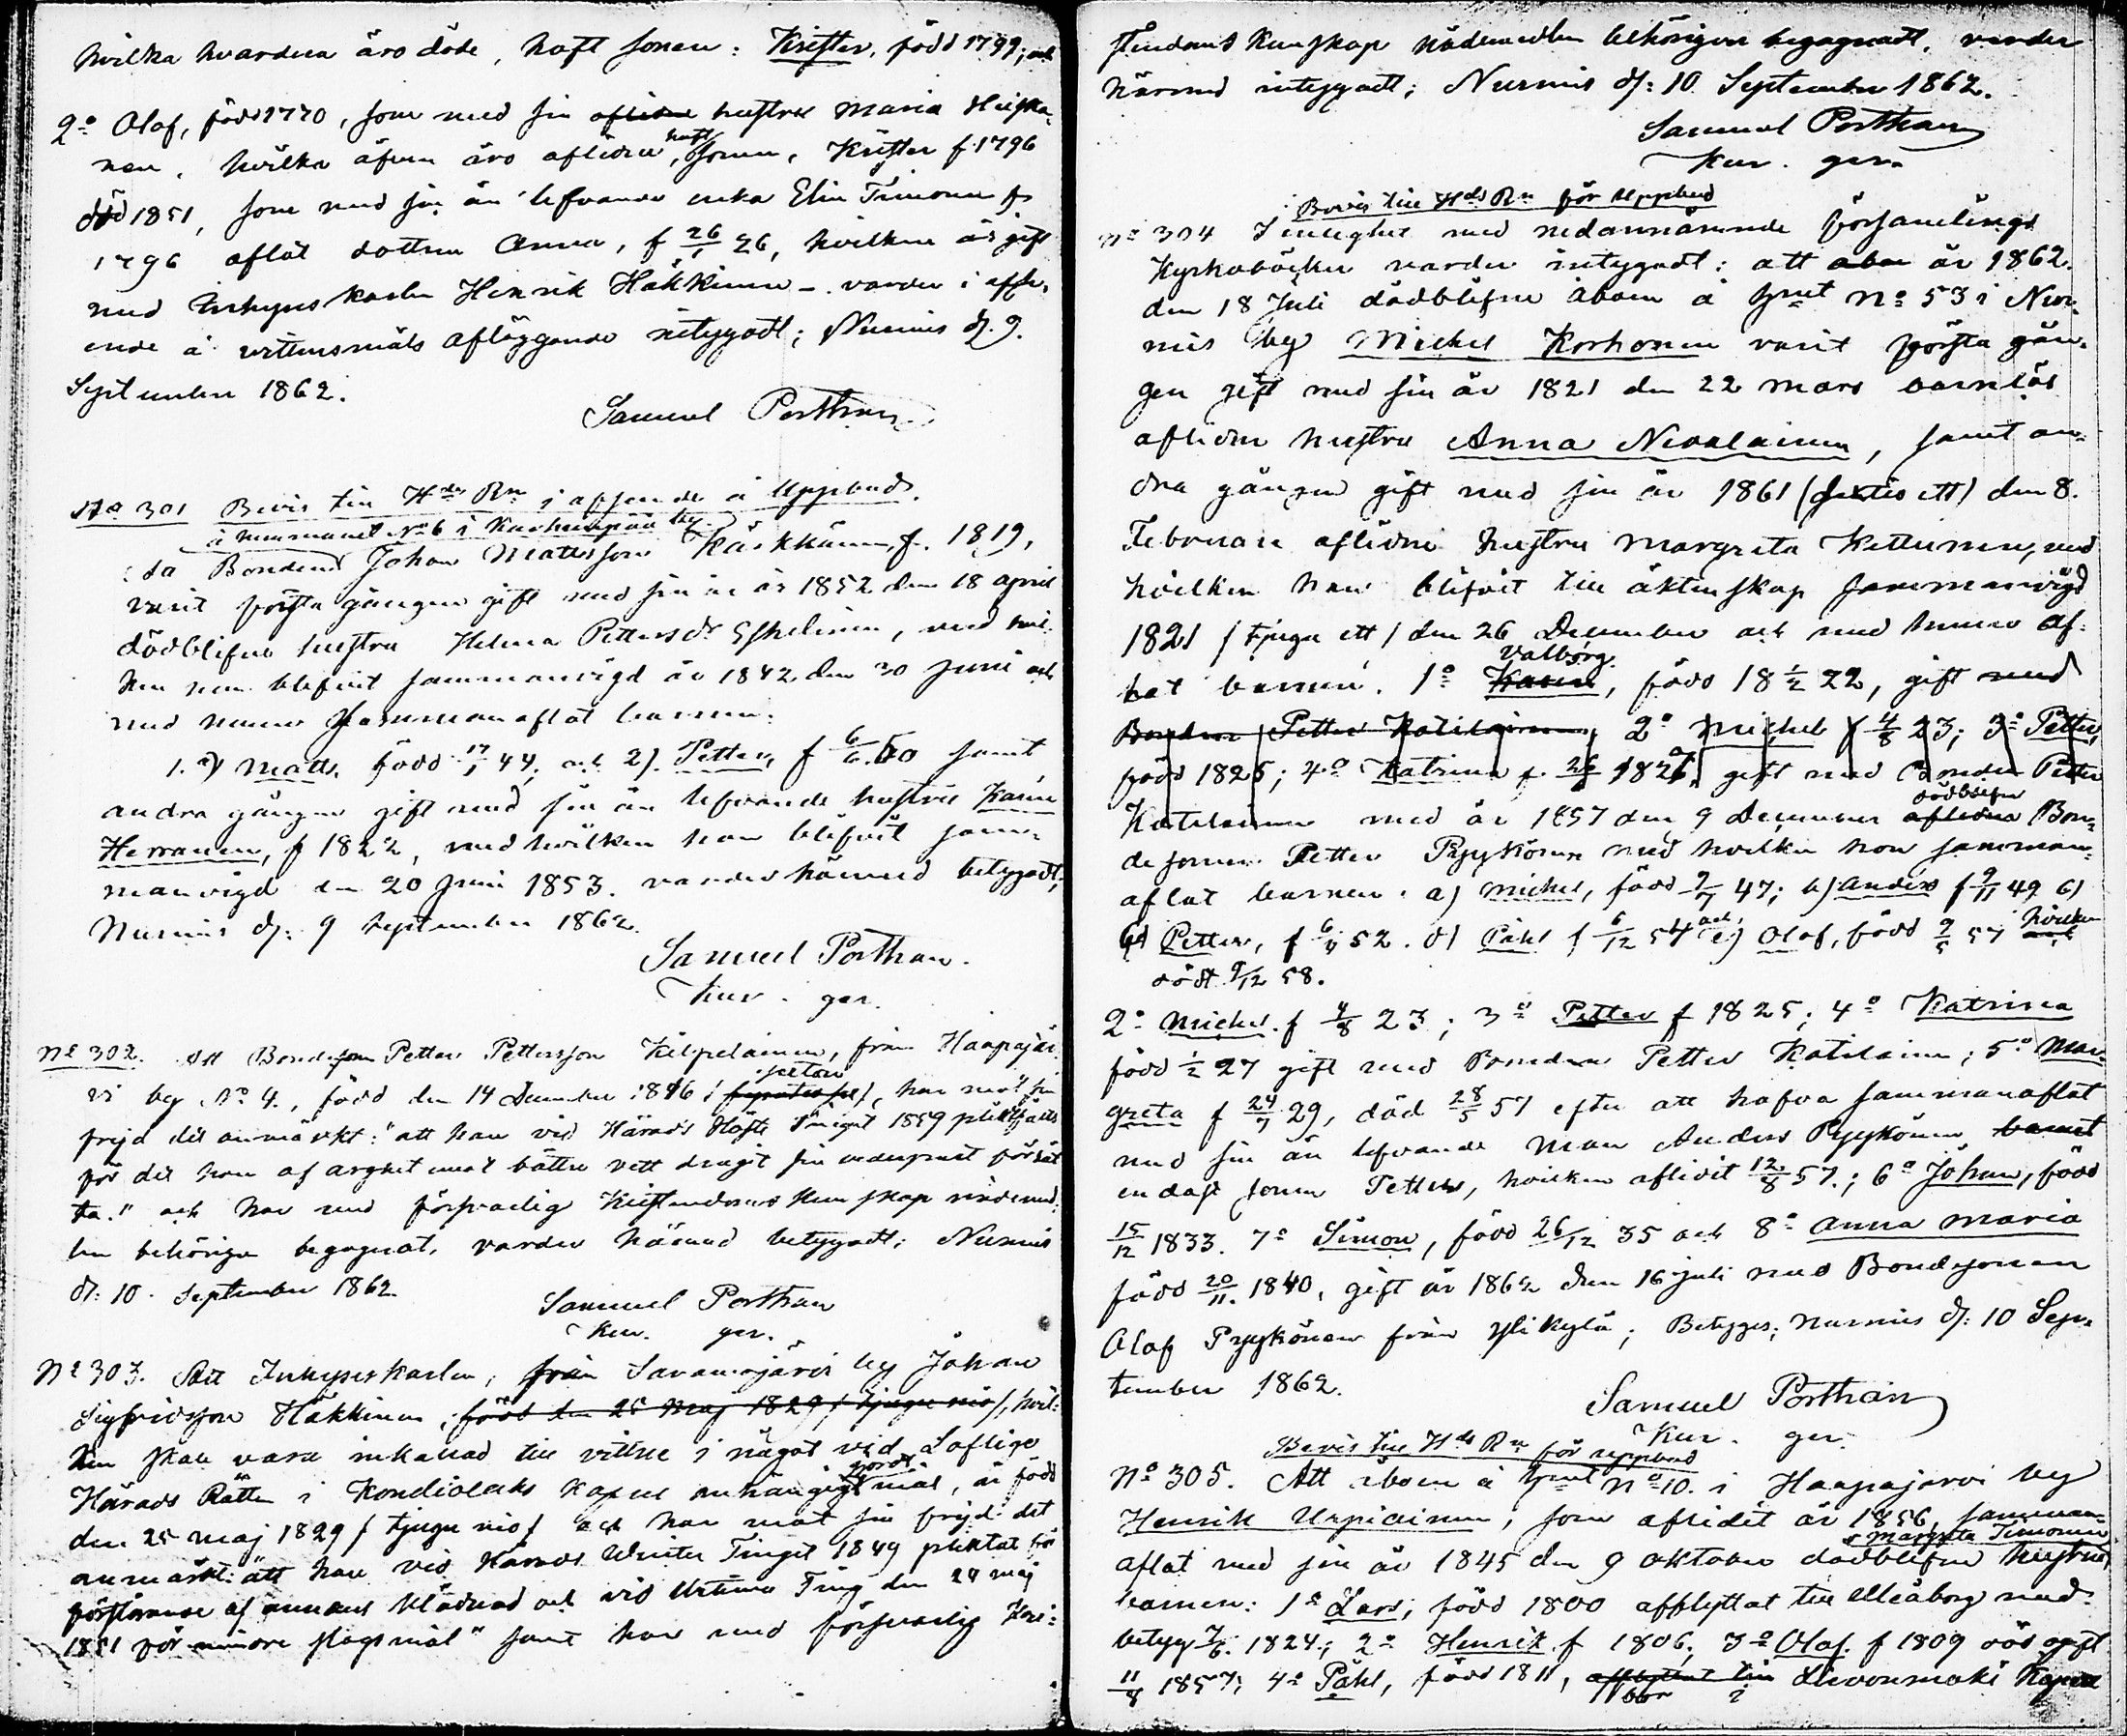 hvilka hvardera äro döde, haft sonen: Krister, född 1799; och
2o Olof, född 1770, som med sin aflidna hustru Maria Heiska-
nen, hvilka äfven äro aflidna, haft sonen, Krister f. 1796
död 1851, som med sin än lefvande enka Elin Timonen f.
1796 aflat dottren Anna, f 26/1 26, hvilken är gift
med Inhyses karlen Henrik Häkkinen – varder i afse-
ende å vittnesmåls afläggande intygadt; Nurmis d. 9.
September 1862.
Samuel Porthan
No 301 Bevis till Hds Rn i afseende å Uppbud.
å hemmanet No 6 i by
Bonden Johan Mattsson Käkkänen, f. 1819,
varit första gången gift med sin år 1852 den 18 april
dödblifne hustru Helena Pettersdr Eskelinen, med hvil-
ken han blifvit sammanvigd år 1842 den 30 Juni och
med henne sammanaflat barnen:
1.) Matts, född 17/1 44, och 2). Petter, f 6/6 50 samt
andra gången gift med sin än lefvande hustru Karin
Herranen, f 1822, med hvilken han blifvit sam-
manvigd den 20 Juni 1853. varder härmed betygadt;
Nurmis d: 9 September 1862.
Samuel Porthan.
Kur. ger.
No 302. Att Bondeson Petter Pettersson Kilpelainen, från Haapajär
vi by No 4., född den 14 December 1816 / sexton /, har mot sin
frejd det anmärkt: "att han vid Härads Höste Tinget 1859 pliktfälts
för det han af arghet mot bättre vett dragit sin underskrift
ta." och har med försvarlig Kristendoms kunskap nådemed-
len behörigen begagnat, varder härmed betygadt; Nurmis
d: 10. September 1862.
Samuel Porthan
Kur. ger.
No 303. Att Inhyseskarlen, från Saramojärvi by Johan
Sigfridsson Häkkinen, född den 25 Maj 1829 / tjugu nio /, hvil-
ken skall vara inkallad till vittne i något vid Loflige
Härads Rätten i Kondiolaks Kapell anhängigt gjordt mål, är född
den 25 maj 1829 / tjugu nio / och har mot sin frejd det
anmärkt: "att han vid Härads Winter Tinget 1849 pliktat för
förstörande af annans klädnad och vid Urtima Ting den 24 maj
1851 för mindre slagsmål" samt har med försvarlig Kri-
stendoms Kunskap nådemedlen behörigen begagnadt, varder
härmed intygadt; Nurmis d: 10. September 1862.
Samuel Porthan
Kur. ger.
Bevis till Hds Rn för Uppbud
No 304 I enlighet med nedannämnde församlings
Kyrkoböcker varder intygadt: att åbo år 1862.
den 18 Juli dödblifne åboen å Hmt No 53 i Nur-
mis by Michel Korhonen varit första gån-
gen gift med sin år 1821 den 22 Mars barnlös
aflidne hustru Anna Nevalainen, samt an-
dra gången gift med sin år 1861 (sextio ett) den 8.
Februari aflidne hustru Margreta Kettunen, med
hvilken han blifvit till äktenskap sammanvigd
1821 / tjugu ett / den 26 December och med henne af-
lat barnen: 1o Karin Valborg, född 18 1/2 22, gift med
Bonden Petter Katilainen, 2o Michel f 4/8 23; 3o Petter,
född 1825; 4o Katrina f. 1827, gift med Bonden Petter
Katilainen med år 1857 den 9 December aflidna dödblifne Bon-
desonen Petter Pyykönen med hvilken hon samman-
aflat barnen: a) Michel, född 9/7 47; b) Anders f 9/11 49 c)
Petter, f 6/4 52. d) Påhl f 6/12 54 och e) Olof, född 9/5 57 hvilken
dödt 9/12 58.
2o Michel f 4/8 23; 3o Petter f 1825; 4o Katrina
född 1/2 27 gift med Bonden Petter Katilainen; 5o Mar-
greta f 24/7 29, död 28/5 57 efter att hafva sammanaflat
med sin än lefvande man Anders Pyykönen barnet
endast sonen Petter, hvilken aflidit 12/8 57.; 6o Johan, född
15/12 1833. 7o Simon, född 26/12 35 och 8o Anna Maria
född 20/11. 1840, gift år 1862 den 16 Juli med Bondesonen
Olof Pyykönen från Ylikylä; Betygas; Nurmis d: 10 Sep-
tember 1862.
Samuel Porthan
Kur. ger.
Bevis till Hds Rn för uppbud
No 305. Att åboen å Hmt No 10. i Haapajärvi by
Henrik Urpiainen, som aflidit år 1856, samman-
aflat med sin år 1845 den 9 oktober dödblifne hustru Margreta Timonen
barnen: 1o Lars; född 1800 afflyttat till Uleåborg med
betyg 7/6. 1824; 2o Henrik f 1806; 3o Olof f 1809 död ogift
11/8 1857; 4o Påhl, född 1811, afflyttat till bor i Lievonmäki Kapell